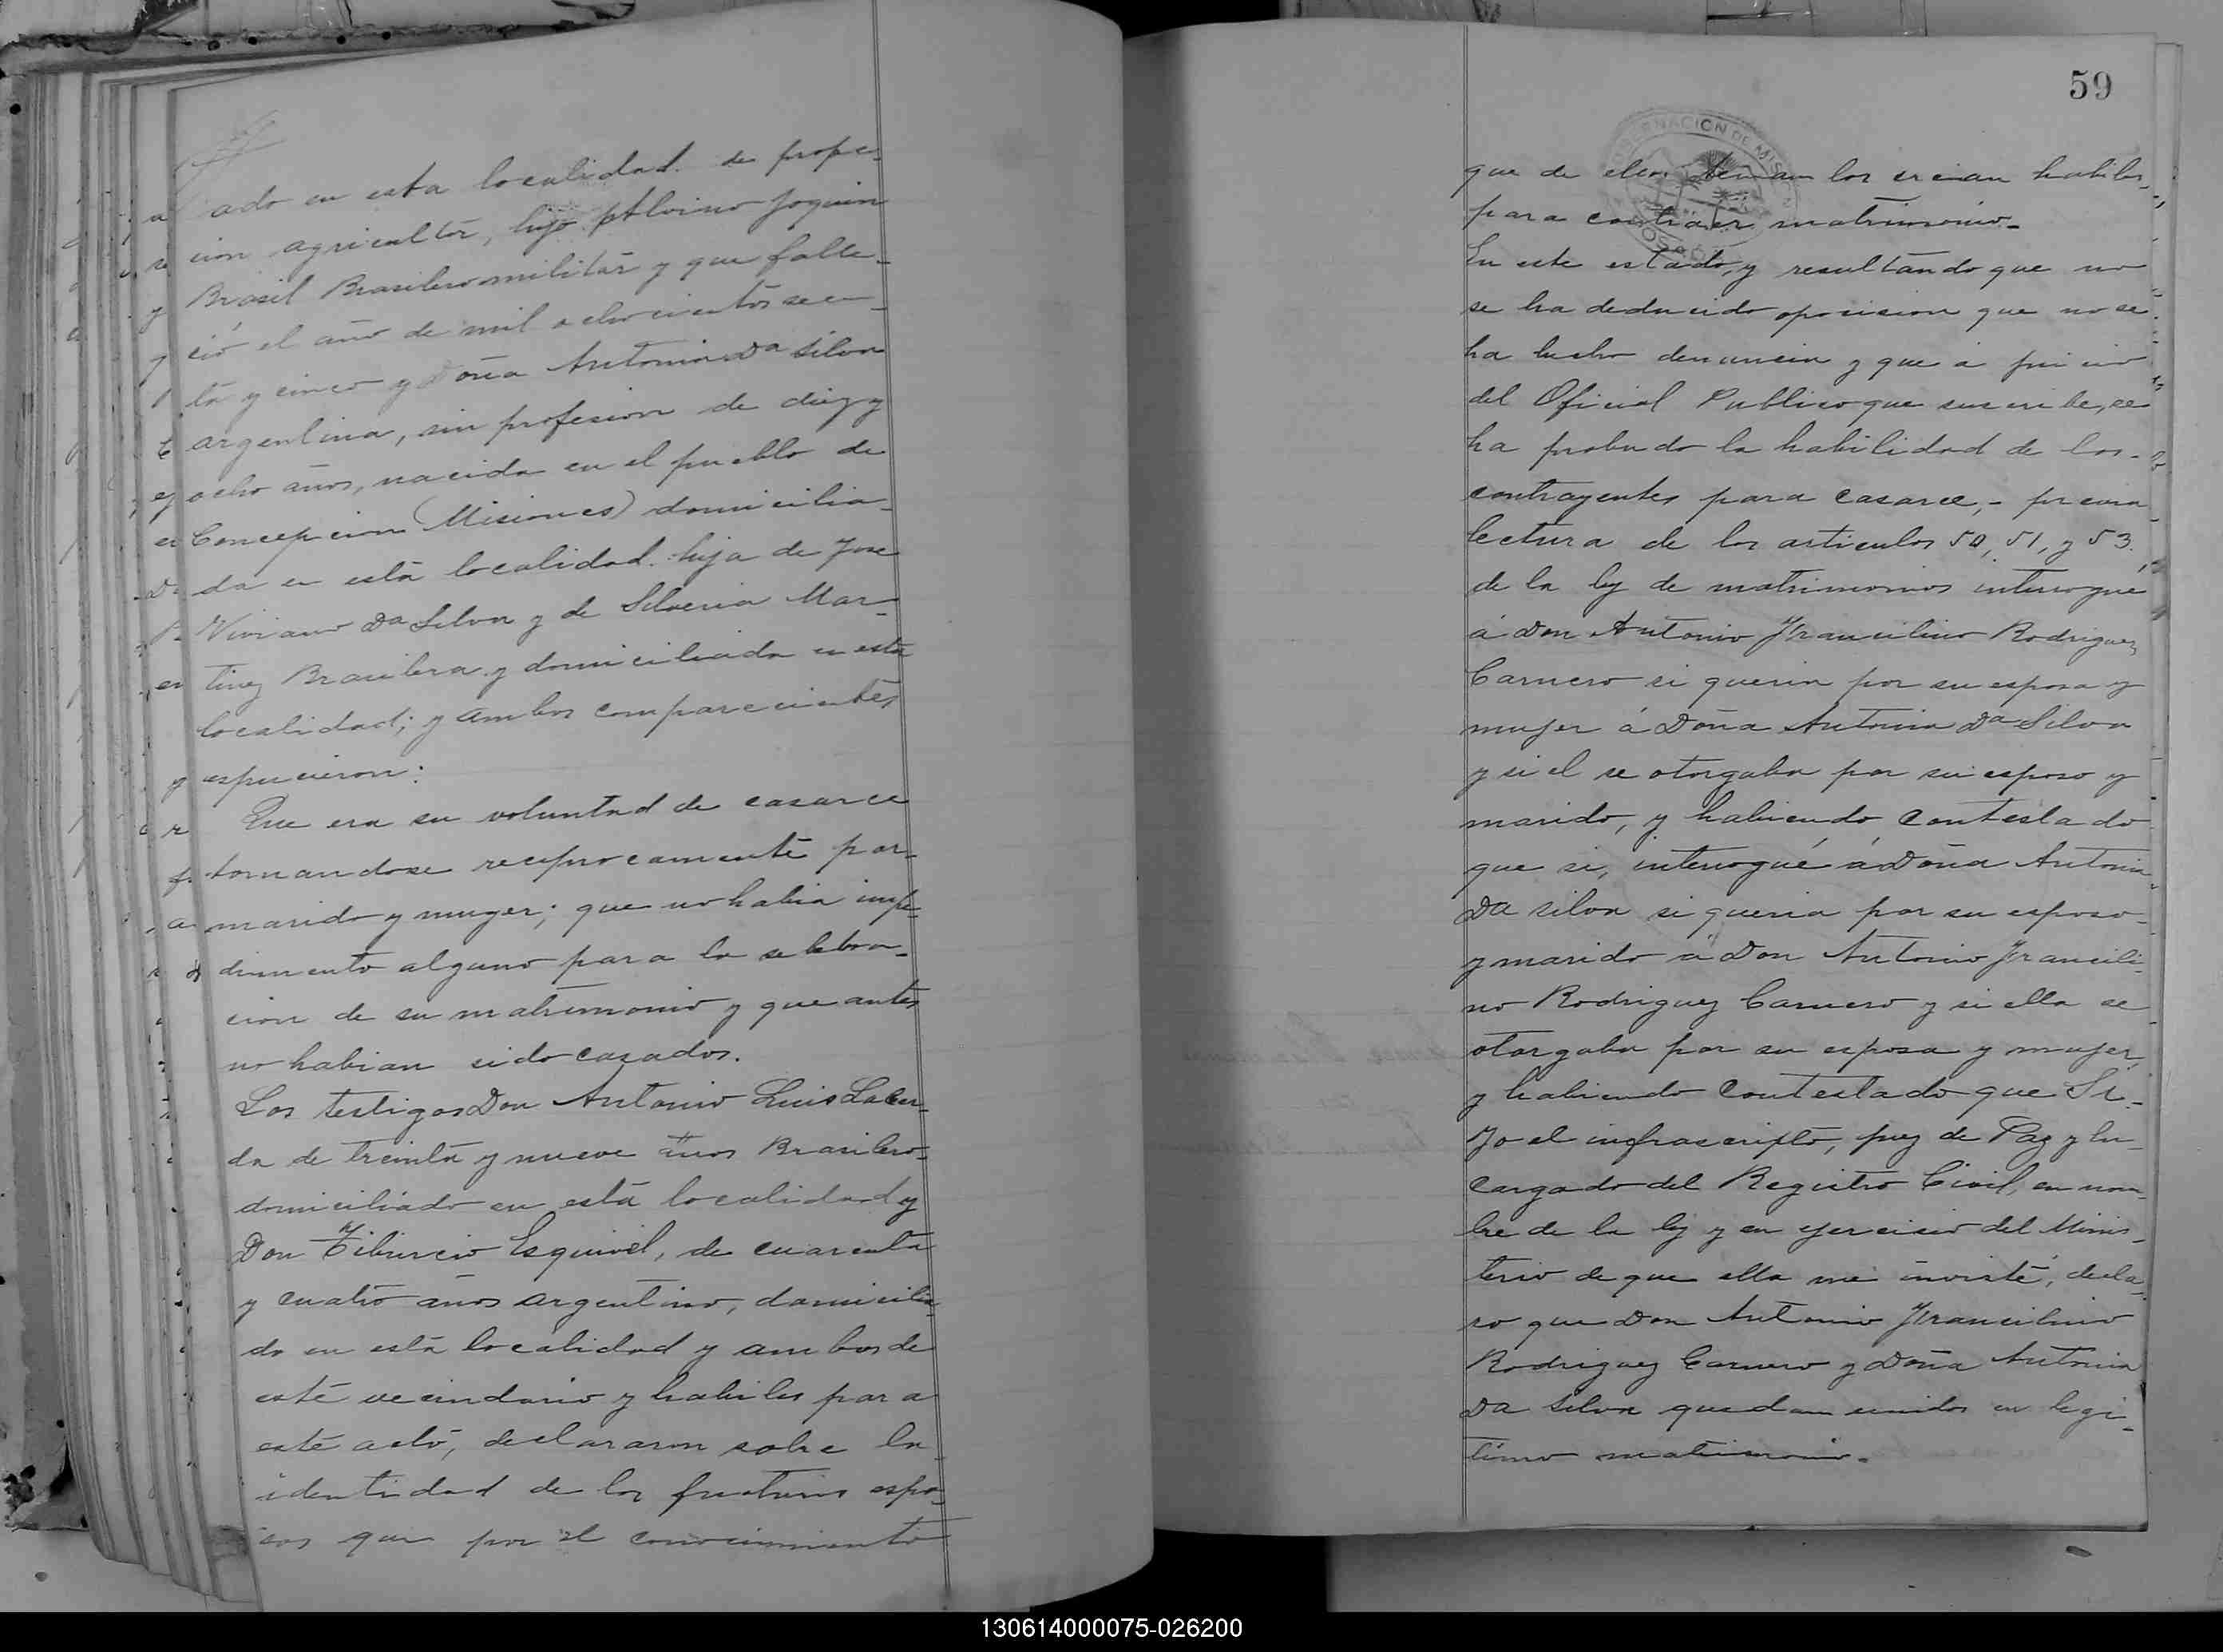 ado en esta localidad. de profe-
cion agricultor, hijo Alvino Joquin
Brasil Brasilero militar y que falle-
ció el año de mil ochocientos seen-
ta y cinco y Doña Antonia Da Silva
argentina, sin profesion de diez y
ocho años, nacida en el pueblo de
Concepcion (Misiones) domicilia-
da en esta localidad. hija de Jose
Viviano Da Silva y de Silveria Mar-
tinez Brasilera y domiciliada en esta
localidad; y ambos comparecientes
espucieron:
Que era su voluntad de casarce
tomandose reciprocamente por
marido y muger; que no habia impe-
dimento alguno para la selebra-
cion de su matrimonio y que antes
no habian sido casados.
Los testigos Don Antonio Luis Lacer-
da de treinta y nueve años Brasilero-
domiciliado en esta localidad y
Don Tiburcio Esquivel, de cuarenta
y cuatro años argentino, domicilia-
do en esta localidad y ambos de
este vecindario y habiles para
este acto, declararon sobre la
identidad de los fucturos espo-
sos que por el conocimiento
59
GOBERNACION DE MISIONES
POSADAS
que de ellos tenian los creian habiles-
para contraer matrimonio-
En este estado, y resultando que no
se ha deducido oposicion que no se
ha hecho denuncia y que á juicio
del Oficial Publico que suscribe, se
ha probado la habilidad de los-
contrayentes para casarce,- previa
lectura de los articulos 50, 51, y 53.
de la ley de matrimonios interrogué
á Don Antonio Francilino Rodriguez
Carnero si queria por su esposa y
mujer á Doña Antonia Da Silva
y si el se otorgaba por su esposo y
marido, y habiendo contestado
que si, interrogué á Doña Antonia
Da Silva si queria por su esposo-
y marido á Don Antonio Francili-
no Rodriguez Carnero y si ella se
otorgaba por su esposa y mujer,
y habiendo contestado que Si-
Yo el infrascripto, juez de Paz y En-
cargado del Registro Civil, en nom-
bre de la ley y en ejercicio del Minis-
terio de que ella me inviste, decla-
ro que Don Antonio Francilino
Rodriguez Carnero y Doña Antonia
Da Silva quedan unidos en legi-
timo matrimonio.-
130614000075-026200